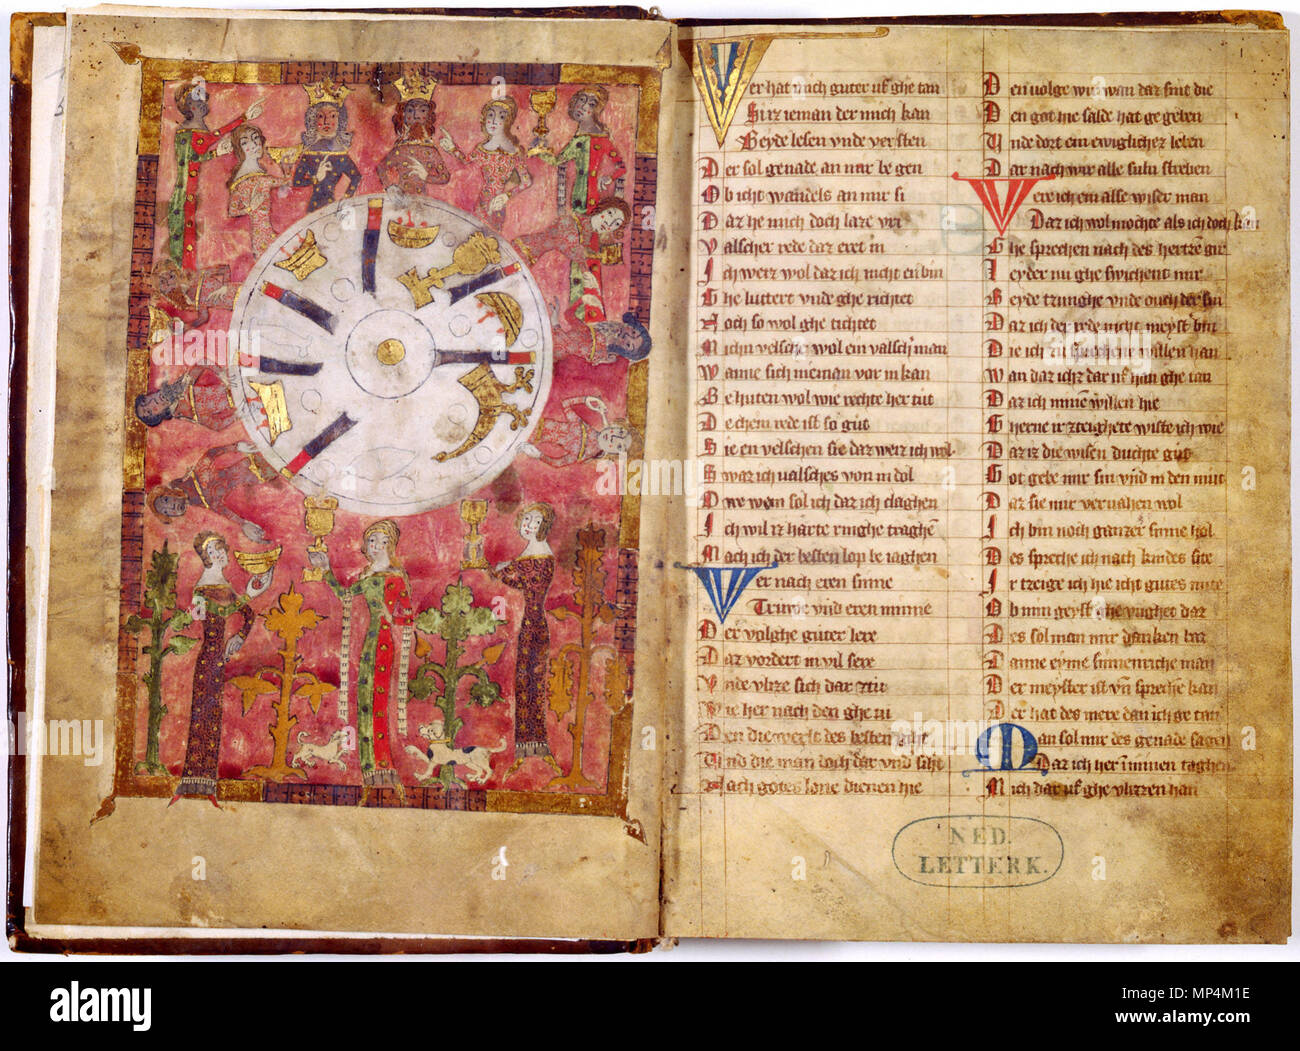 Wer hat mich guter uf ghe tan
Si iz ieman der mich kan
Beyde lesen vnde versten
Der sol genade an mir be gen
Ob icht wandels an mir si
Daz he mich doch laze vri
Valscher rede daz eret in
Ich weiz wol daz ich nicht en bin
Ghe luttert vnde ghe richtet
Noch so wol ghe tichtet
Mich velscher wol ein valsch man
Wanne sich nieman vor in kan
Be huten wol wie rechte her tut
De chein rede ist so gut
Sie en velschen sie daz weiz ich wol
Swaz ich valsches von in dol
Owe wem sol ich daz ich claghen
Ich wil iz harte ringhe traghen
Mach ich der besten lop be iaghen
Wer nach eren sinne
Truwe vnd eren minne
Der volghe guter lere
Daz vordert in vil sere
Vnde vlize sich dar zu
Wie her nach den ghe tu
Den die werlt des besten giht
Vnd die man doch dar vnd siht
Nach gotes lone dienen hie
Den volge wir wan daz sint die
Den got hie salde hat ge geben
Vnde dort ein ewiglichez leben
Dar nach wir alle suln streben
Were ich ein alse wiser man
Daz ich wol mochte als ich doch kan
Ghe sprechen nach des hertzen gir
Leyder nu ghe swichent mir
Beyde tzunghe vnde ouch der sin
Daz ich der rede nicht meyster bin
Die ich zu sprechene willen han
Wan daz ichz dar uf han ghe tan
Daz ich minen willen hie
Gherne irtzeighete wiste ich wie
Daz iz die wisen duchte gut
Got gebe mir sin vnd in den mut
Daz sie mir vervahen wol
Ich bin noch gantzer sinne hol
Des spreche ich nach kindes site
Irtzeige ich hie icht gutes mite
Ob min geyst ghe vughet daz
Des sol man mir danken baz
Danne eyme sinnenriche man
Der meyster ist vnd sprechen kan
Der hat des mere dan ich ge tan
Man sol mir des genade sagen
Daz ich her in minen taghen
Mich dar uf ghe vlizzen han
NED.
LETTERK.
alamy
Image ID: MP4M1E
www.alamy.com